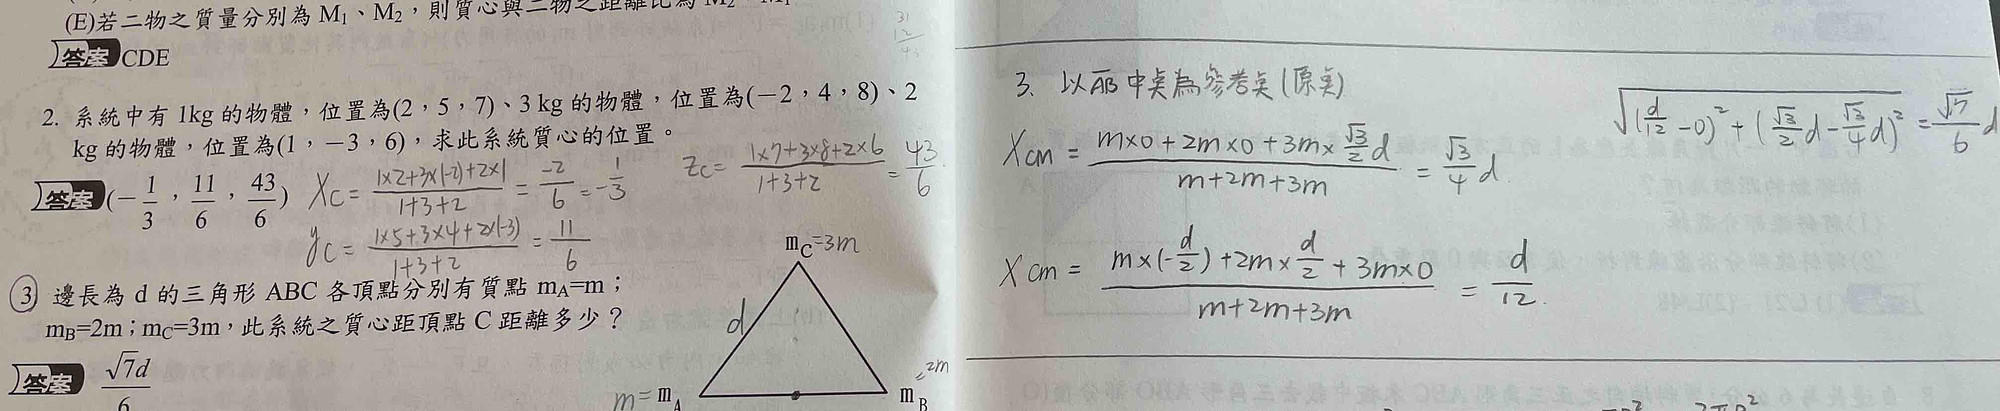 (E)若二物之質量分別為 M₁、M₂，則質心與二物之距離比為 M₂
答案 CDE
31
12
43
2. 系統中有 1kg 的物體，位置為(2，5，7)、3 kg 的物體，位置為(－2，4，8)、2
kg 的物體，位置為(1，－3，6)，求此系統質心的位置。
答案 (－1/3，11/6，43/6)
Xc = (1×2+3×(-2)+2×1)/(1+3+2) = -2/6 = -1/3
Zc = (1×7+3×8+2×6)/(1+3+2) = 43/6
yc = (1×5+3×4+2×(-3))/(1+3+2) = 11/6
③ 邊長為 d 的三角形 ABC 各頂點分別有質點 mA=m；
mB=2m；mC=3m，此系統之質心距頂點 C 距離多少？
答案 √7d/6
mC=3m
d
m=mA
mB=2m
3. 以AB中點為參考點(原點)
Xcm = (m×0+2m×0+3m×√3/2 d)/(m+2m+3m) = √3/4 d
√((d/12-0)²+(√3/2 d-√3/4 d)²) = √7/6 d
Xcm = (m×(-d/2)+2m×d/2+3m×0)/(m+2m+3m) = d/12